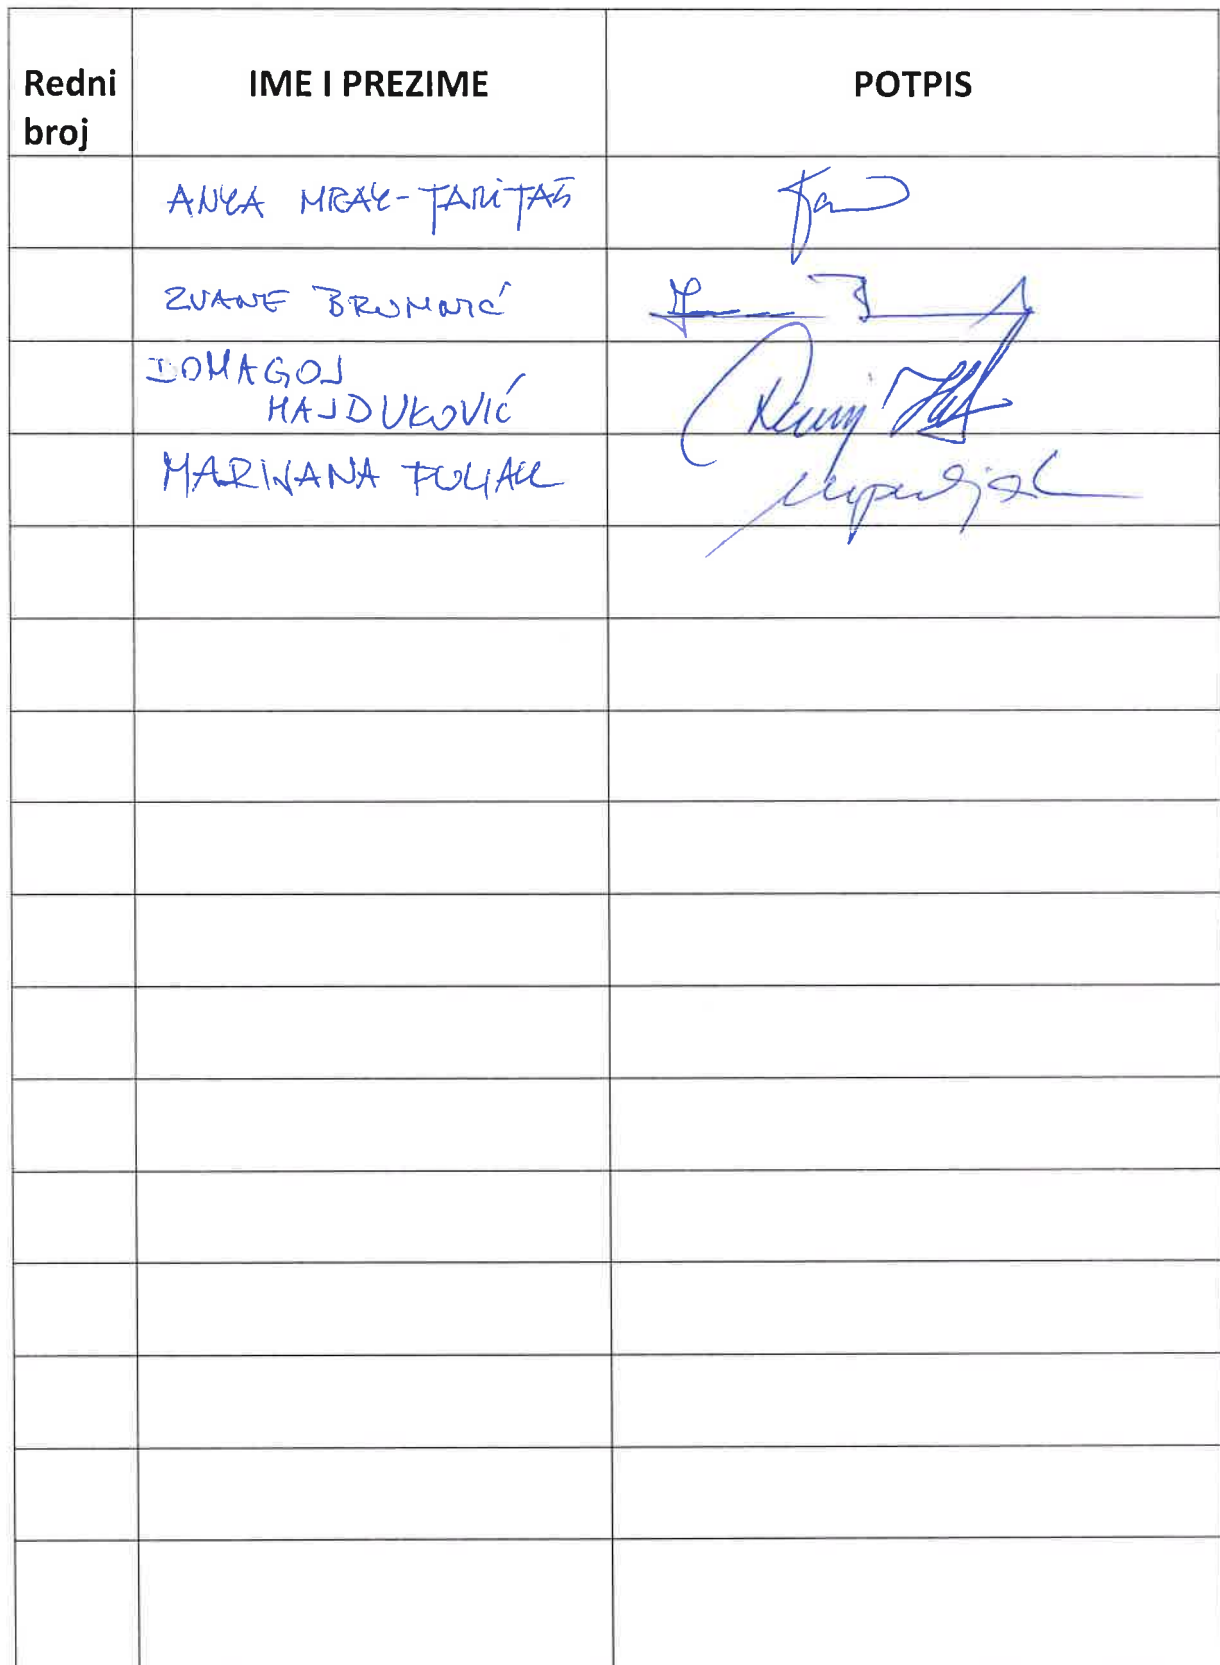 Redni
broj
IME I PREZIME
POTPIS
ANKA MRAK-TARITAŠ
ZVANE BRUMNIĆ
DOMAGOJ
HAJDUKOVIĆ
MARIJANA PULJAK